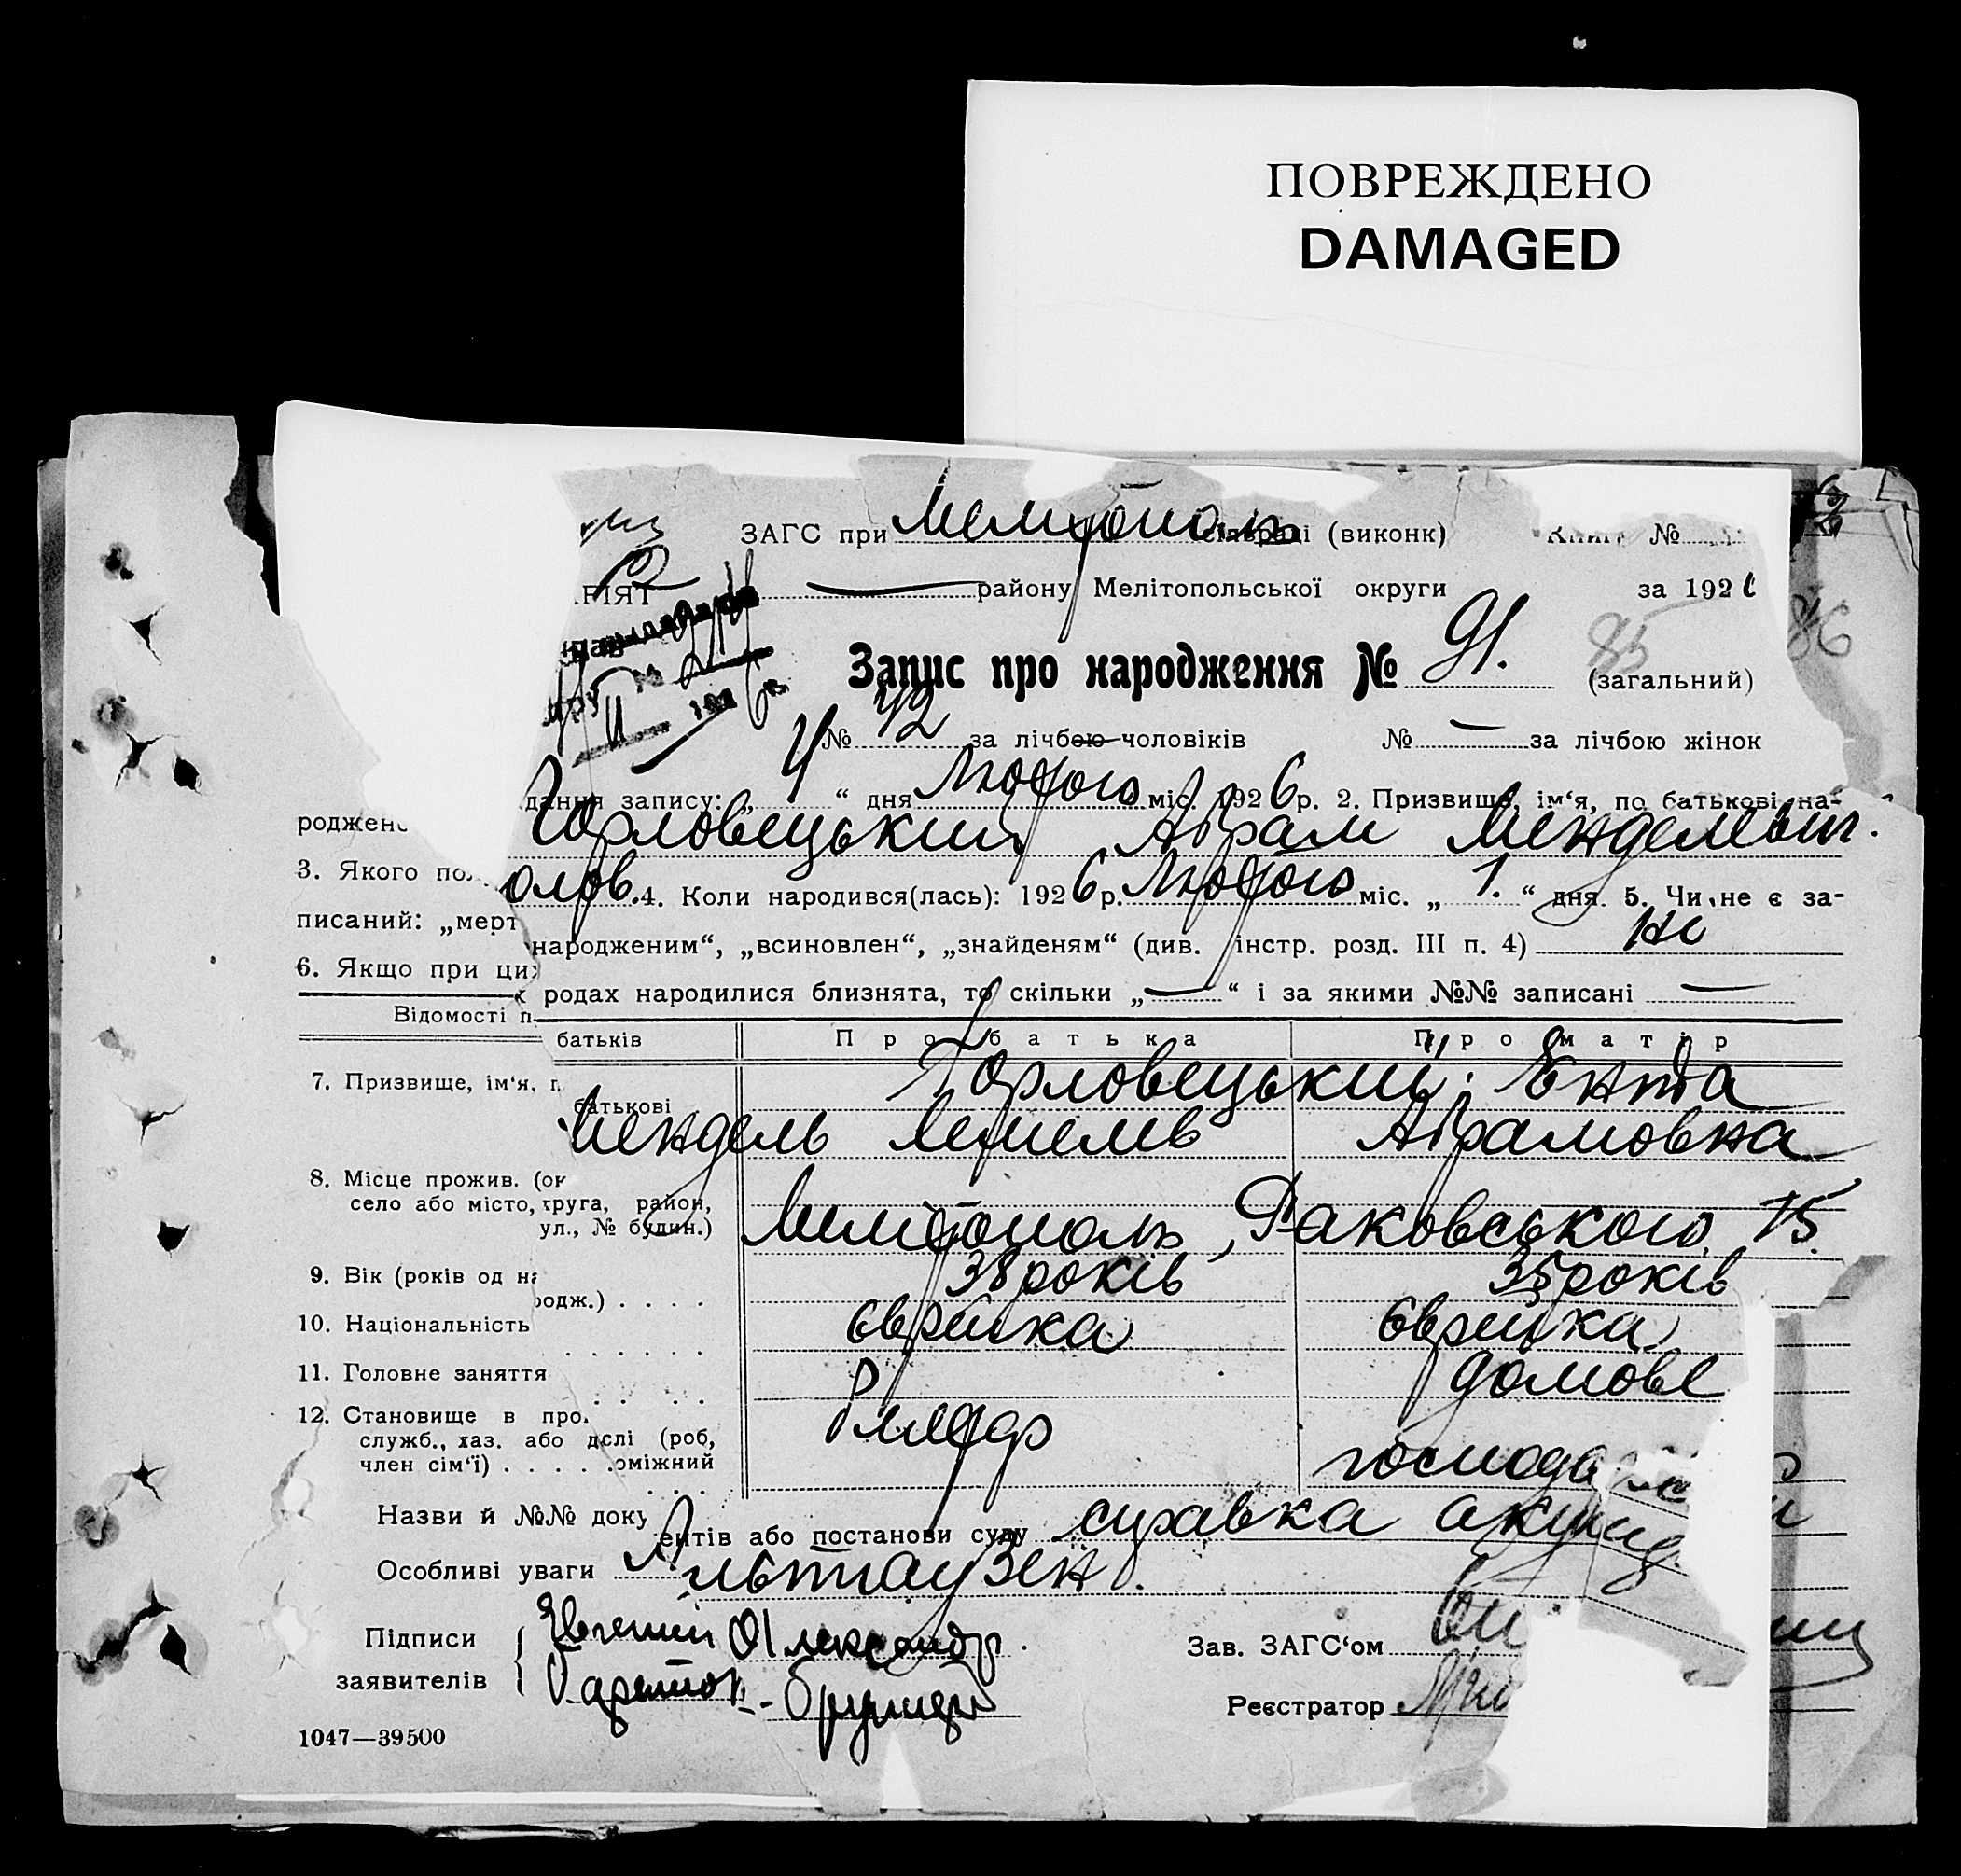 ПОВРЕЖДЕНО
DAMAGED
ЗАГС при Мелітополь сільраді (виконк) Книга №
району Мелітопольської округи за 192
Запис про народження № 91. 85 86
(загальний)
№ 42 за лічбою чоловіків № — за лічбою жінок
дання запису: „ 4 “ дня Лютого міс. 1926 р. 2. Призвище, ім‘я, по батькові на-
роджено Горловецький Абрам Мендельвич.
3. Якого пол олов. 4. Коли народився(лась): 1926 р. Лютого міс. „ 1. “ дня. 5. Чи не є за-
писаний: „мерт народженим“, „всиновлен“, „знайденям“ (див. інстр. розд. III п. 4) не
6. Якщо при цих родах народилися близнята, то скільки „ — “ і за якими №№ записані —
Відомості п батьків Про батька Про матір
7. Призвище, ім‘я, п батькові Горловецький; Ента
Мендель Абрамовна
8. Місце прожив. (округа, район,
село або місто, ул., № будин.) Мелітополь, Раковського, 75.
9. Вік (років од народж.) . . . . 38 років 35 років
10. Національність . . . . . . Єврейка Єврейка
11. Головне заняття . . . . домове
12. Становище в про
служб., хаз. або долі (роб,
член сім‘ї) . . . . . оміжний господа
Назви й №№ документів або постанови суду справка акушер
Особливі уваги Альтгаузен.
Підписи
заявителів Евгений Олександр.
Зав. ЗАГС‘ом
Реєстратор
1047—39500